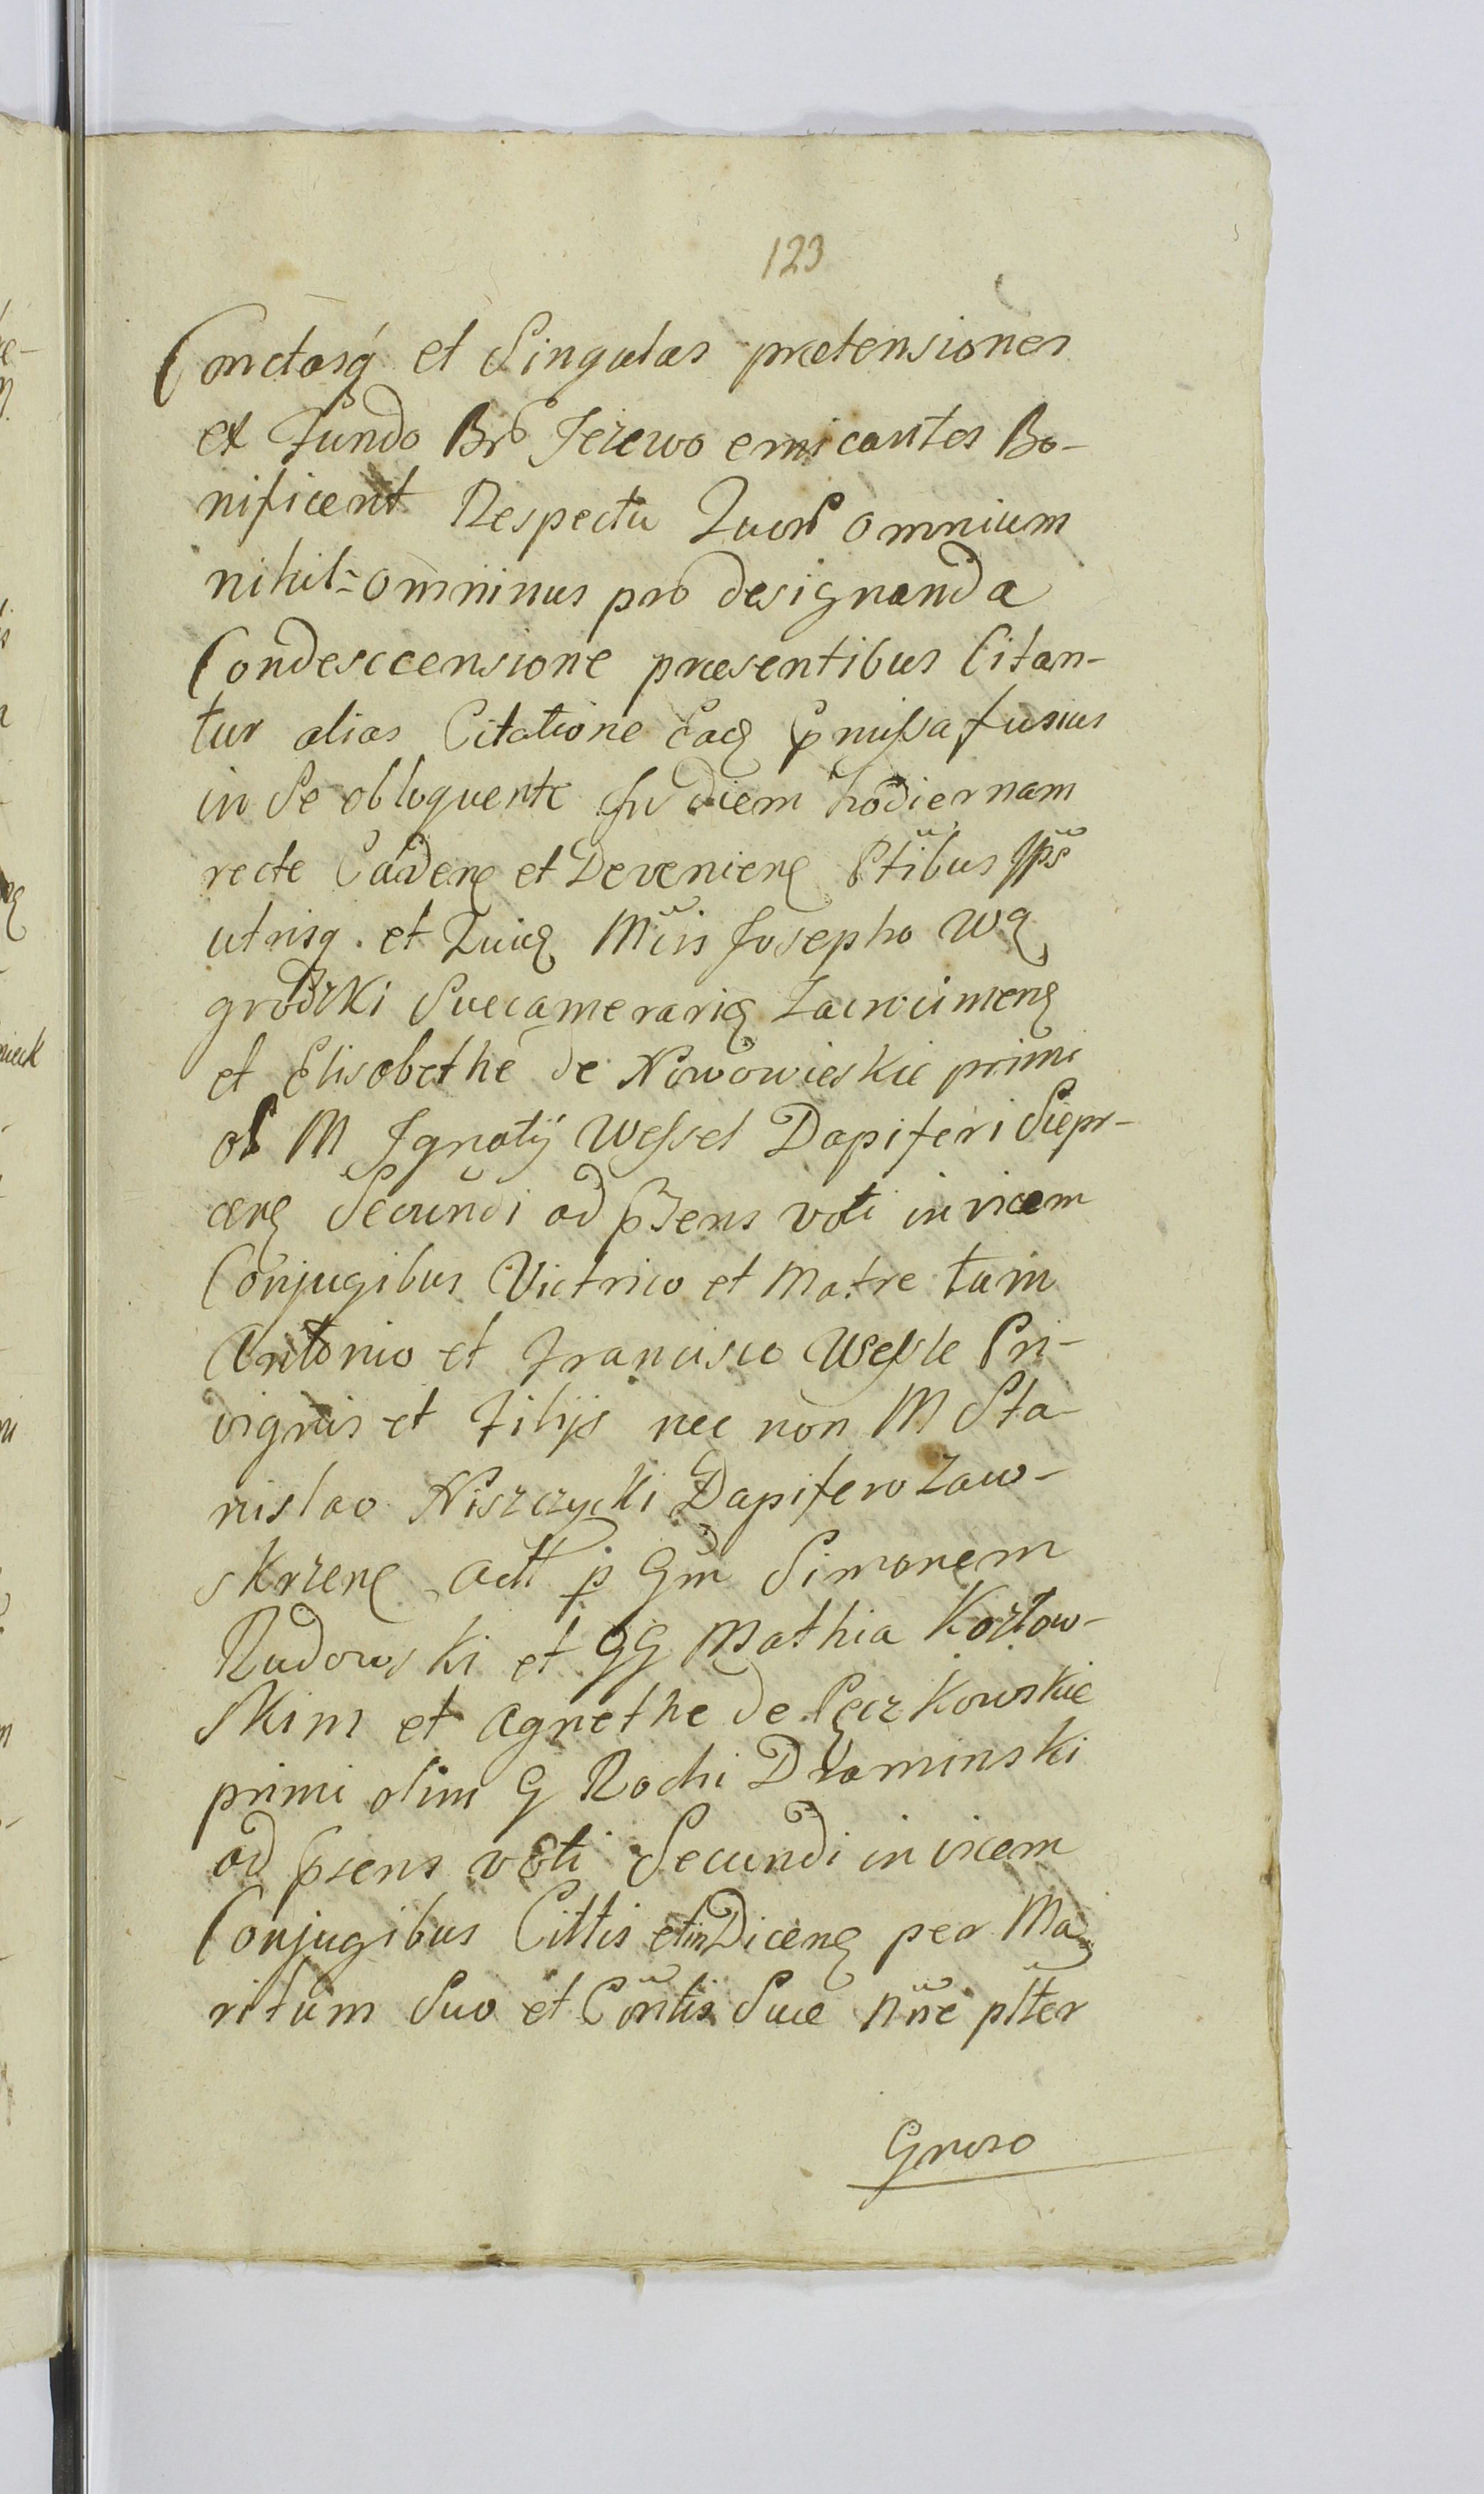 123
Cunctasq́ et Singulas prætensiones
ex Fundo Bro͠ Jeżewo emicantes Bo-
nificent Respectu Quor͠ omnium
nihil-omninus pro designanda
Condesccensione præsentibus Citan-
tur alias Citatione Eaq præmissa fusius
in Se obloquente In diem hodiernam
recte Caden et Devenien Ptibus Ips
utrisq. et Quiq Mcis Josepho Wę
grodzki Succamerariq Zacrocimen
et Elisabethe de Nowowieskie primi
ol M Ignatij Wessel Dapiferi Siepr-
cen Secundi ad præsens voti invicem
Conjugibus Victrico et Matre tum
Antonio et Francisco Wessle Pri-
vignis et Filijs nec non M Sta-
nislao Niszczycki Dapifero Zaw-
skrzen Actt p Gm Simonem
Rudowski et GG Mathia Kozłow-
skim et Agnethe de Pęczkowskie
primi olim G Rochi Dłaminski
ad præsens voti Secundi invicem
Conjugibus Cittis et in Dicen per Ma
ritum Suo et Contis Suæ nne ptter
Gnoso